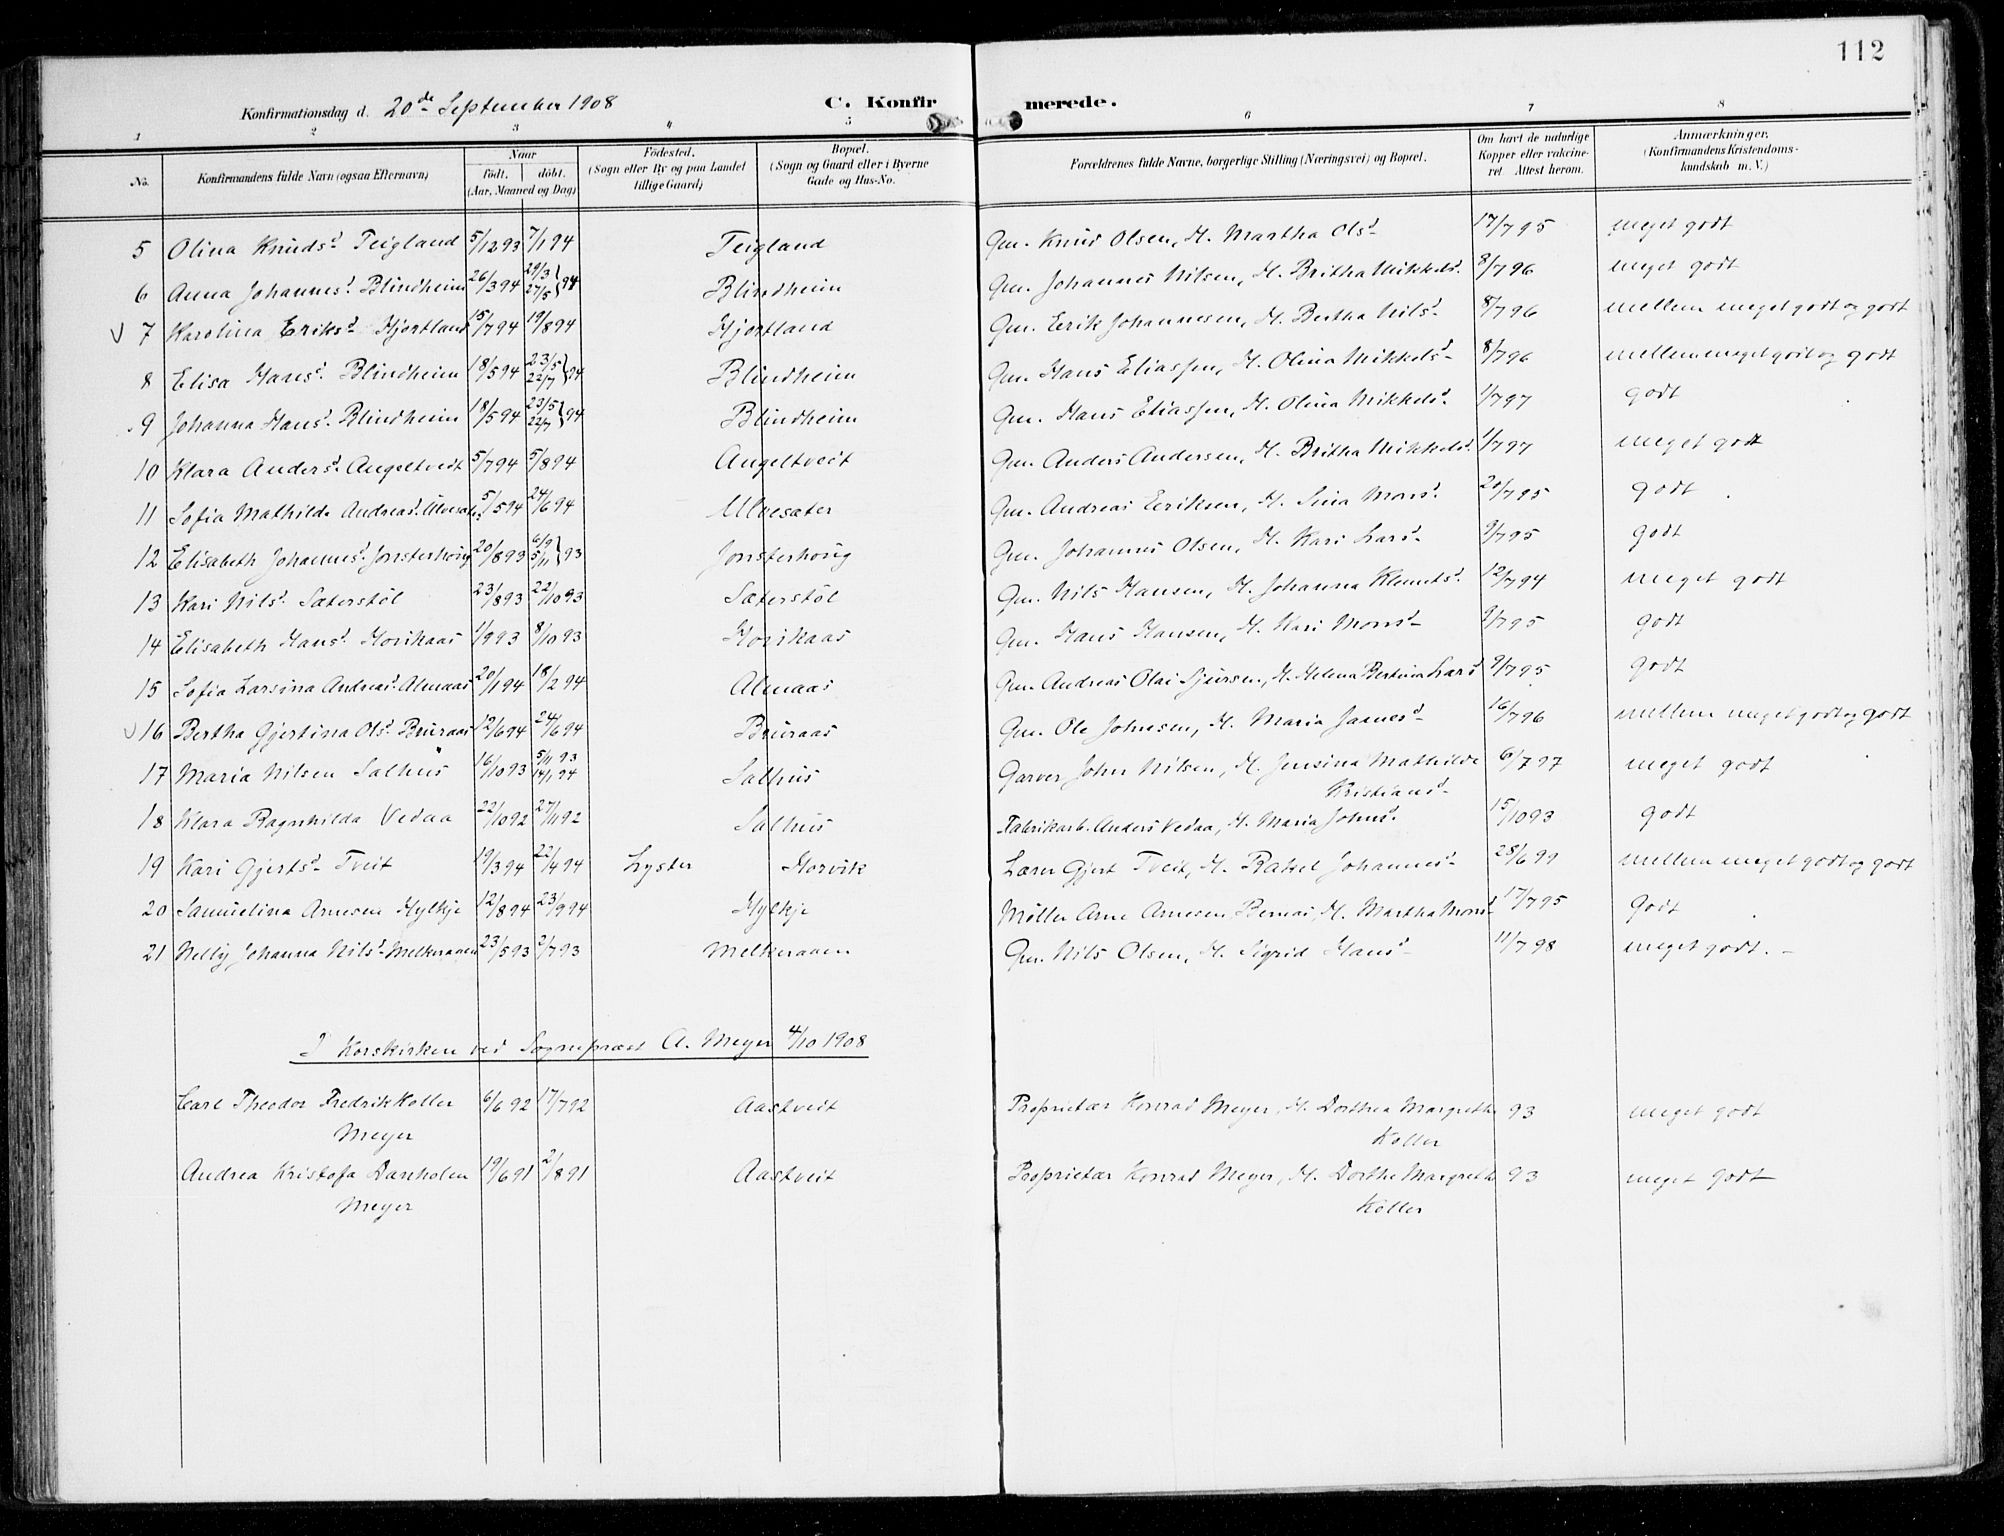 112
Konfirmationsdag d. 20de September 1908 C. Konfirmerede.
1 2 3 4 5 6 7 8
No. Konfirmandens fulde Navn (ogsaa Efternavn) Naar født. døbt. (Aar, Maaned og Dag) Fødested. (Sogn eller By og paa Landet tillige Gaard) Bopæl. (Sogn og Gaard eller i Byerne Gade og Hus-No. Forældrenes fulde Navne, borgerlige Stilling (Næringsvei) og Bopæl. Om havt de naturlige Kopper eller vakcineret Attest herom. Anmærkninger. (Konfirmandens Kristendomskundskab m. V.)
5 Olina Knudsd. Teigland 5/12 93 7/1 94 Teigland Gm. Knud Olsen, H. Martha Olsd. 17/7 95 meget godt
6 Anna Johannesd. Blindheim 26/3 94 29/3 27/5 } 94 Blindheim Gm. Johannes Nilsen, H. Britha Mikkelsd. 8/7 96 meget godt
V 7 Karolina Eriksd. Hjortland 15/7 94 19/8 94 Hjortland Gm. Erik Johannesen, H. Bertha Nilsd. 8/7 96 mellem meget godt og godt
8 Elisa Hansd. Blindheim 18/5 94 23/5 22/7 } 94 Blindheim Gm. Hans Eliassen, H. Olina Mikkelsd. 8/7 96 mellem meget godt og godt
9 Johanna Hansd. Blindheim 18/5 94 23/5 22/7 } 94 Blindheim Gm. Hans Eliassen, H. Olina Mikkelsd. 1/7 97 godt
10 Klara Andersd. Angeltveit 5/7 94 5/8 94 Angeltveit Gm. Anders Andersen, H. Britha Mikkelsd. 1/7 97 meget godt
11 Sofia Mathilda Andreasd. Ulvesæter 5/5 94 24/6 94 Ulvesæter Gm. Andreas Eriksen, H. Sina Monsd. 20/7 95 godt
12 Elisabeth Johannesd. Jonsterhoug 20/8 93 6/9 5/11 } 93 Jonsterhoug Gm. Johannes Olsen, H. Kari Larsd. 9/7 95 godt
13 Kari Nilsd. Sæterstøl 23/8 93 22/10 93 Sæterstøl Gm. Nils Hansen, H. Johanna Klemetsd. 12/7 94 meget godt
14 Elisabeth Hansd. Horikaas 1/9 93 8/10 93 Horikaas Gm. Hans Hansen, H. Kari Monsd. 9/7 95 godt
15 Sofia Larsina Andreasd. Almaas 20/1 94 18/2 94 Almaas Gm. Andreas Olai Sjursen, H. Helena Bertina Larsd. 9/7 95 godt
V 16 Bertha Gjertina Olsd. Bruraas 12/6 94 24/6 94 Bruraas Gm. Ole Johnsen, H. Maria Jamesd. 16/7 96 mellem meget godt og godt
17 Maria Nilsen Salhus 16/10 93 5/11 93 14/1 94 Salhus Garver John Nilsen, H. Jensina Mathilde 6/7 97 meget godt
Kristiansd.
18 Klara Ragnhilda Vedaa 22/10 92 27/11 92 Salhus Fabrikarb. Anders Vedaa, H. Maria Johnsd. 15/10 93 godt
19 Kari Gjertsd. Tveit 19/3 94 22/4 94 Lyster Morvik Lærer Gjert Tveit, H. Rakel Johannesd. 28/6 99 mellem meget godt og godt
20 Samuelina Arnesen Hylkje 12/8 94 23/9 94 Hylkje Møller Arne Arnesen Bernås, H. Martha Monsd. 17/7 95 Godt
21 Nelly Johanna Nilsd. Melkeraaen 23/5 93 2/7 93 Melkeraaen Gm. Nils Olsen, H. Sigrid Hansd. 11/7 98 meget godt.
I Korskirken ved Sognepræst A. Meyer 4/10 1908
Carl Theodor Fredrik Koller 6/6 92 17/7 92 Aastveit Proprietær Konrad Meyer, H. Dorthea Margrethe 93 meget godt
Meyer Koller
Andrea Kristofa Danholm 19/6 91 2/8 91 Aastveit Proprietær Konrad Meyer, H. Dorthe Margrethe 93 meget godt
Meyer Koller